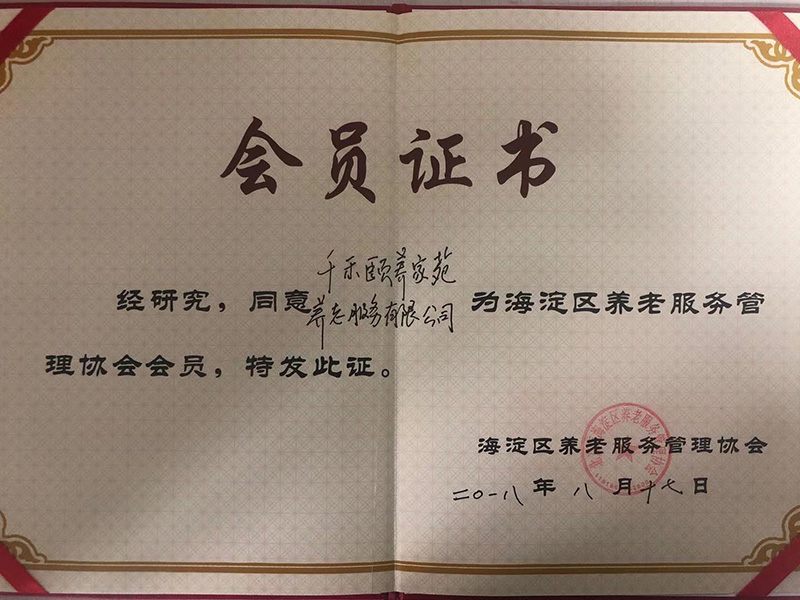 会员证书
千禾颐养家苑
经研究，同意养老服务有限公司为海淀区养老服务管
理协会会员，特发此证。
海淀区养老服务管理协会
二〇一八年八月十七日